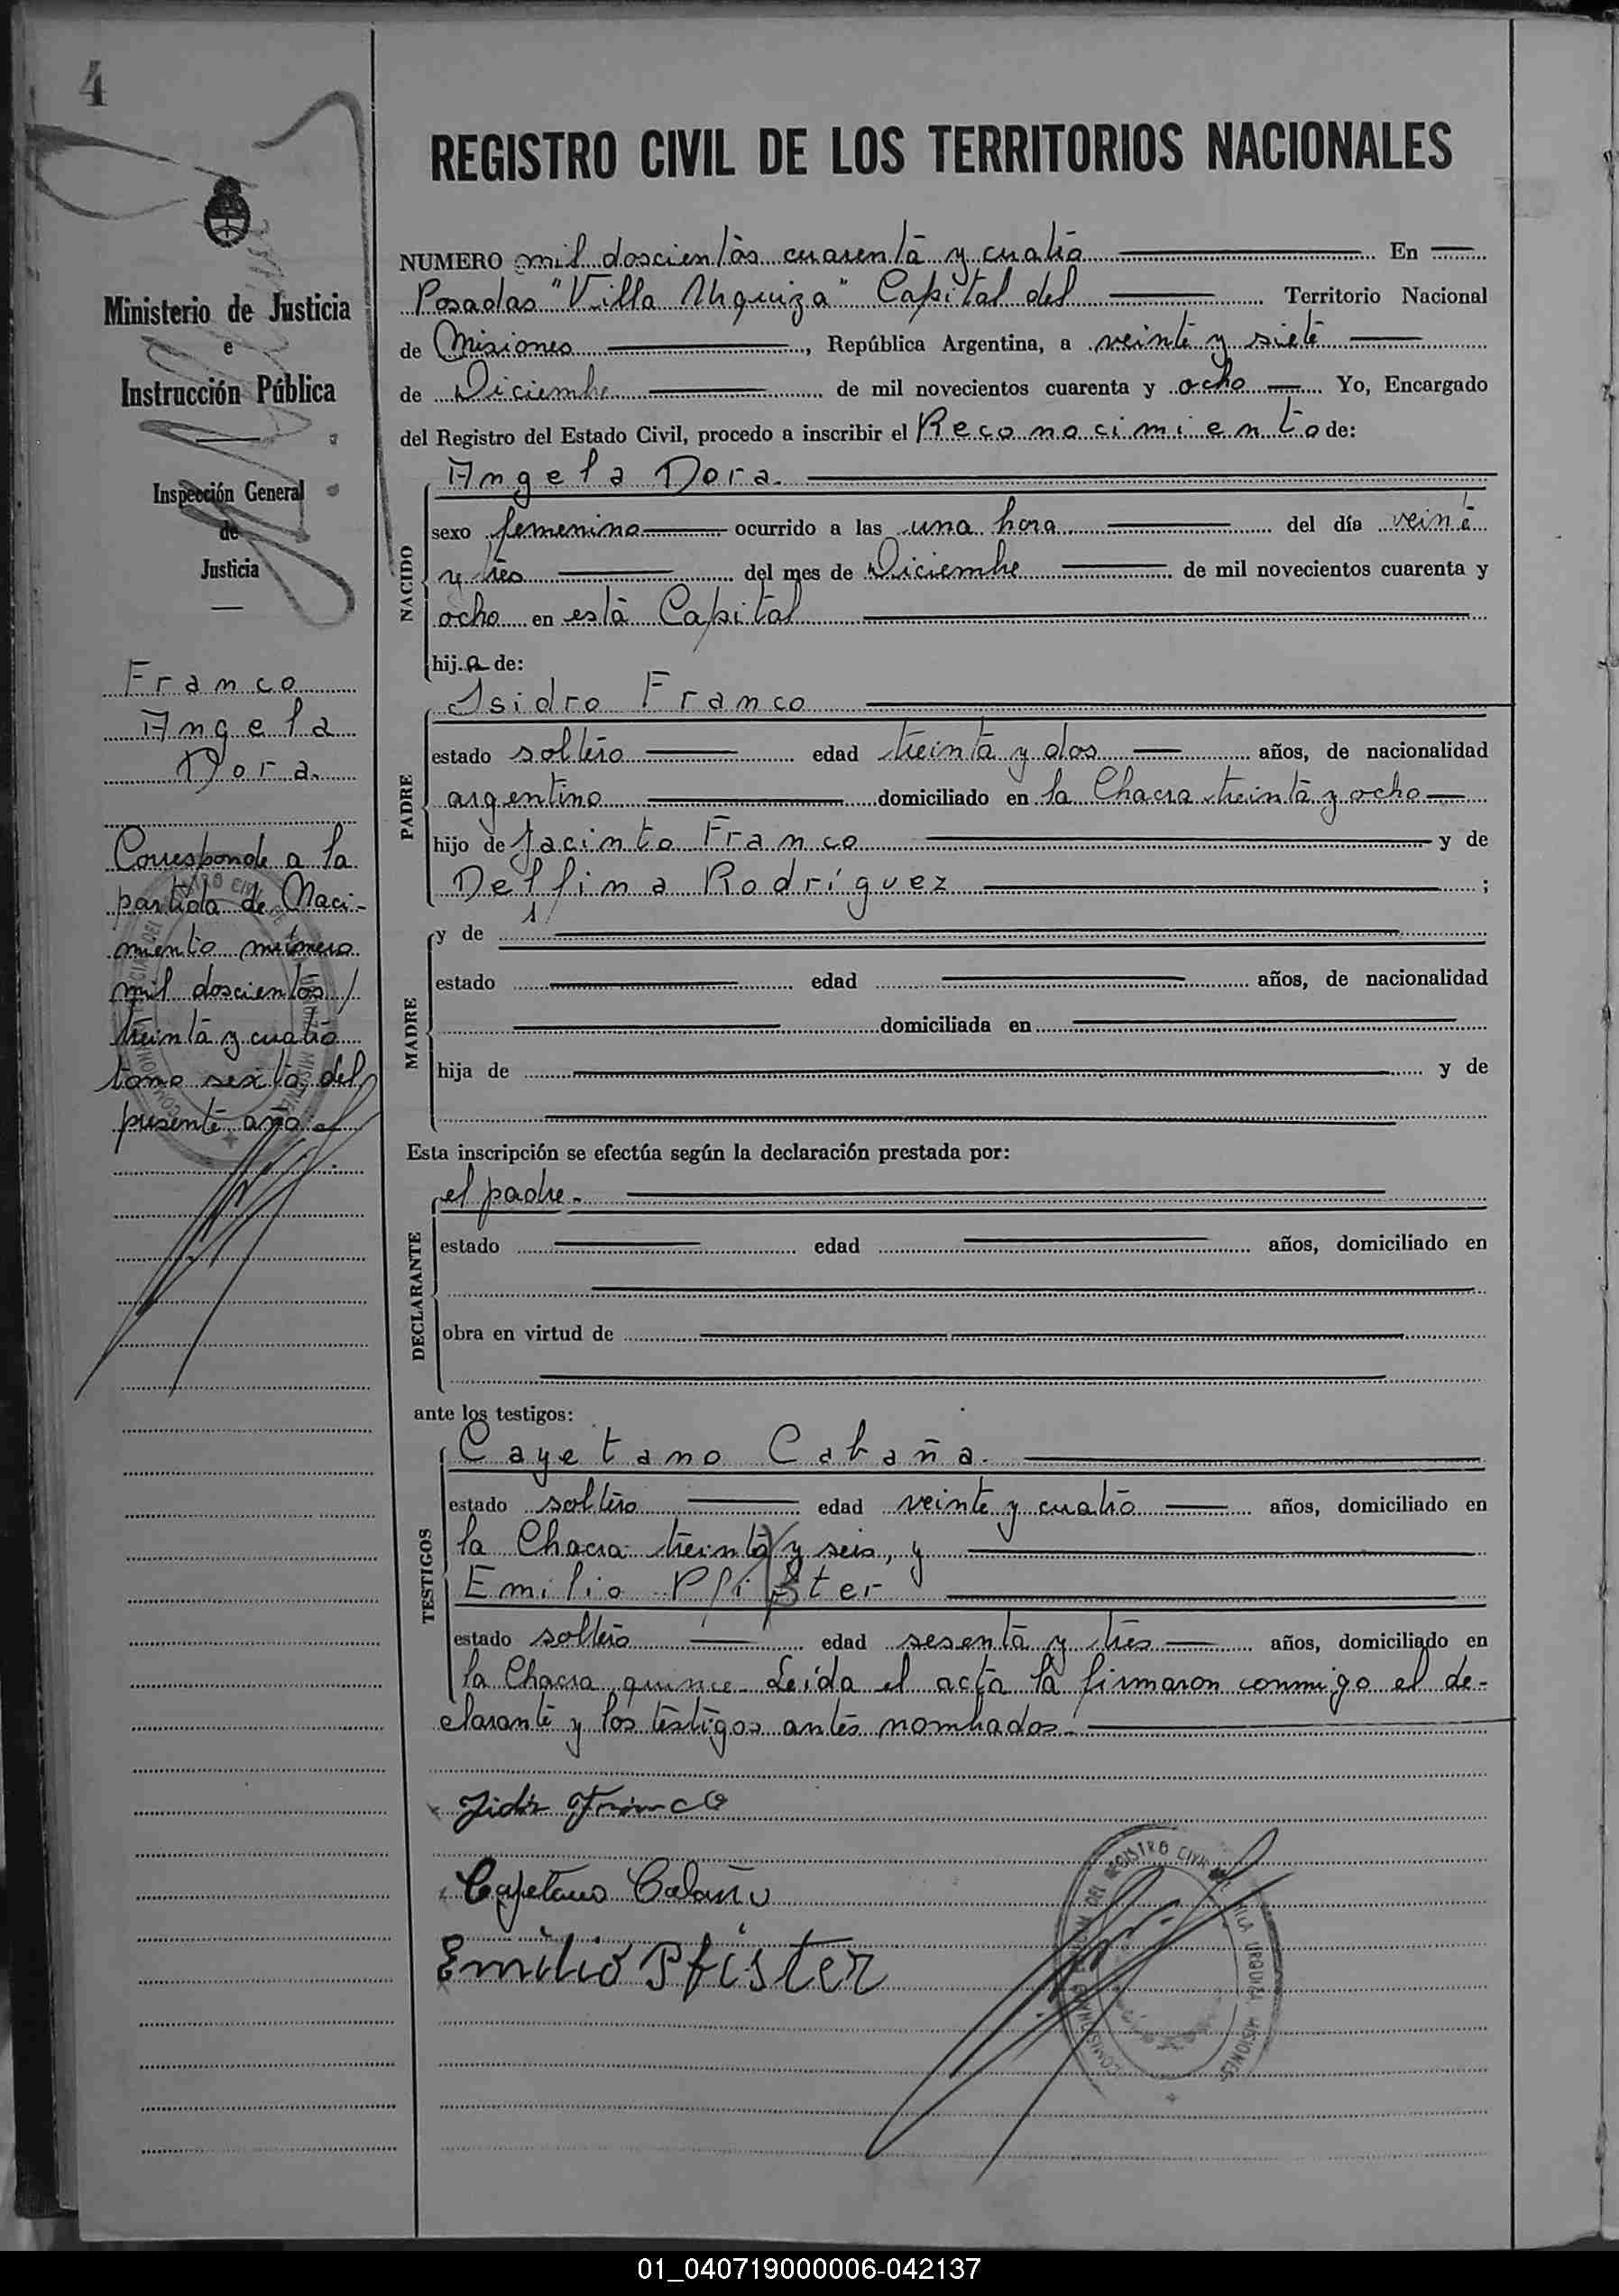 4
REGISTRO CIVIL DE LOS TERRITORIOS NACIONALES
Ministerio de Justicia
e
Instrucción Pública
Inspección General
de
Justicia
Franco
Angela
Dora.
Corresponde a la
partida de Naci-
miento número
mil doscientos
treinta y cuatro
tomo sexto, del
presente año
NUMERO mil doscientos cuarenta y cuatro En
Posadas "Villa Urquiza" Capital del Territorio Nacional
de Misiones, República Argentina, a veinte y siete
de Diciembre de mil novecientos cuarenta y ocho Yo, Encargado
del Registro del Estado Civil, procedo a inscribir el Reconocimiento de:
NACIDO
Angela Dora.
sexo femenino ocurrido a las una hora del día veinte
y tres del mes de Diciembre de mil novecientos cuarenta y
ocho en esta Capital
hija de:
PADRE
Isidro Franco
estado soltero edad treinta y dos años, de nacionalidad
argentino domiciliado en la Chacra treinta y ocho
hijo de Jacinto Franco y de
Delfina Rodríguez ;
MADRE
y de
estado edad años, de nacionalidad
domiciliada en
hija de y de
Esta inscripción se efectúa según la declaración prestada por:
DECLARANTE
el padre.
estado edad años, domiciliado en
obra en virtud de
ante los testigos:
TESTIGOS
Cayetano Cabaña.
estado soltero edad veinte y cuatro años, domiciliado en
la Chacra treinta y seis, y
Emilio Pfister
estado soltero edad sesenta y tres años, domiciliado en
la Chacra quince. Leída el acta la firmaron conmigo el de-
clarante y los testigos antes nombrados.
Franco
Cayetano Cabaña
Emilio Pfister
REGISTRO CIVIL VILLA URQUIZA MISIONES
01_040719000006-042137